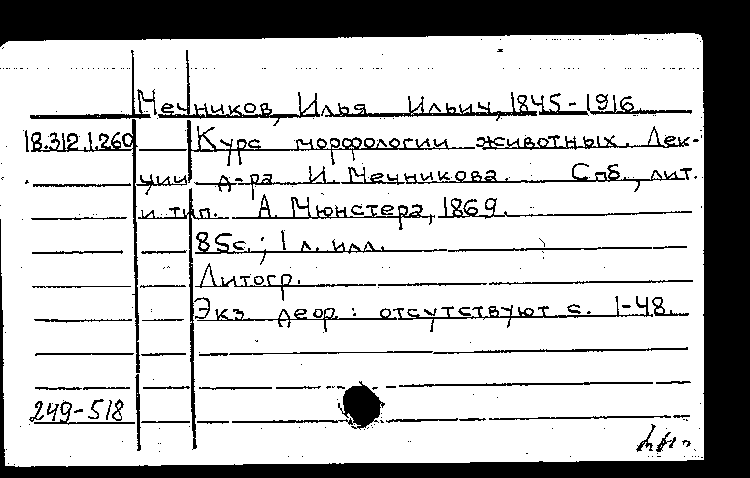 Мечников, Илья Ильич, 1845-1916
18.312.1.260 Курс морфологии животных. Лек-
ции д-ра И. Мечникова. Спб., лит.
и тип. А. Мюнстера, 1869.
85с.; 1 л. илл.
Литогр.
Экз. дефор: отсутствуют с. 1-48.
249-518